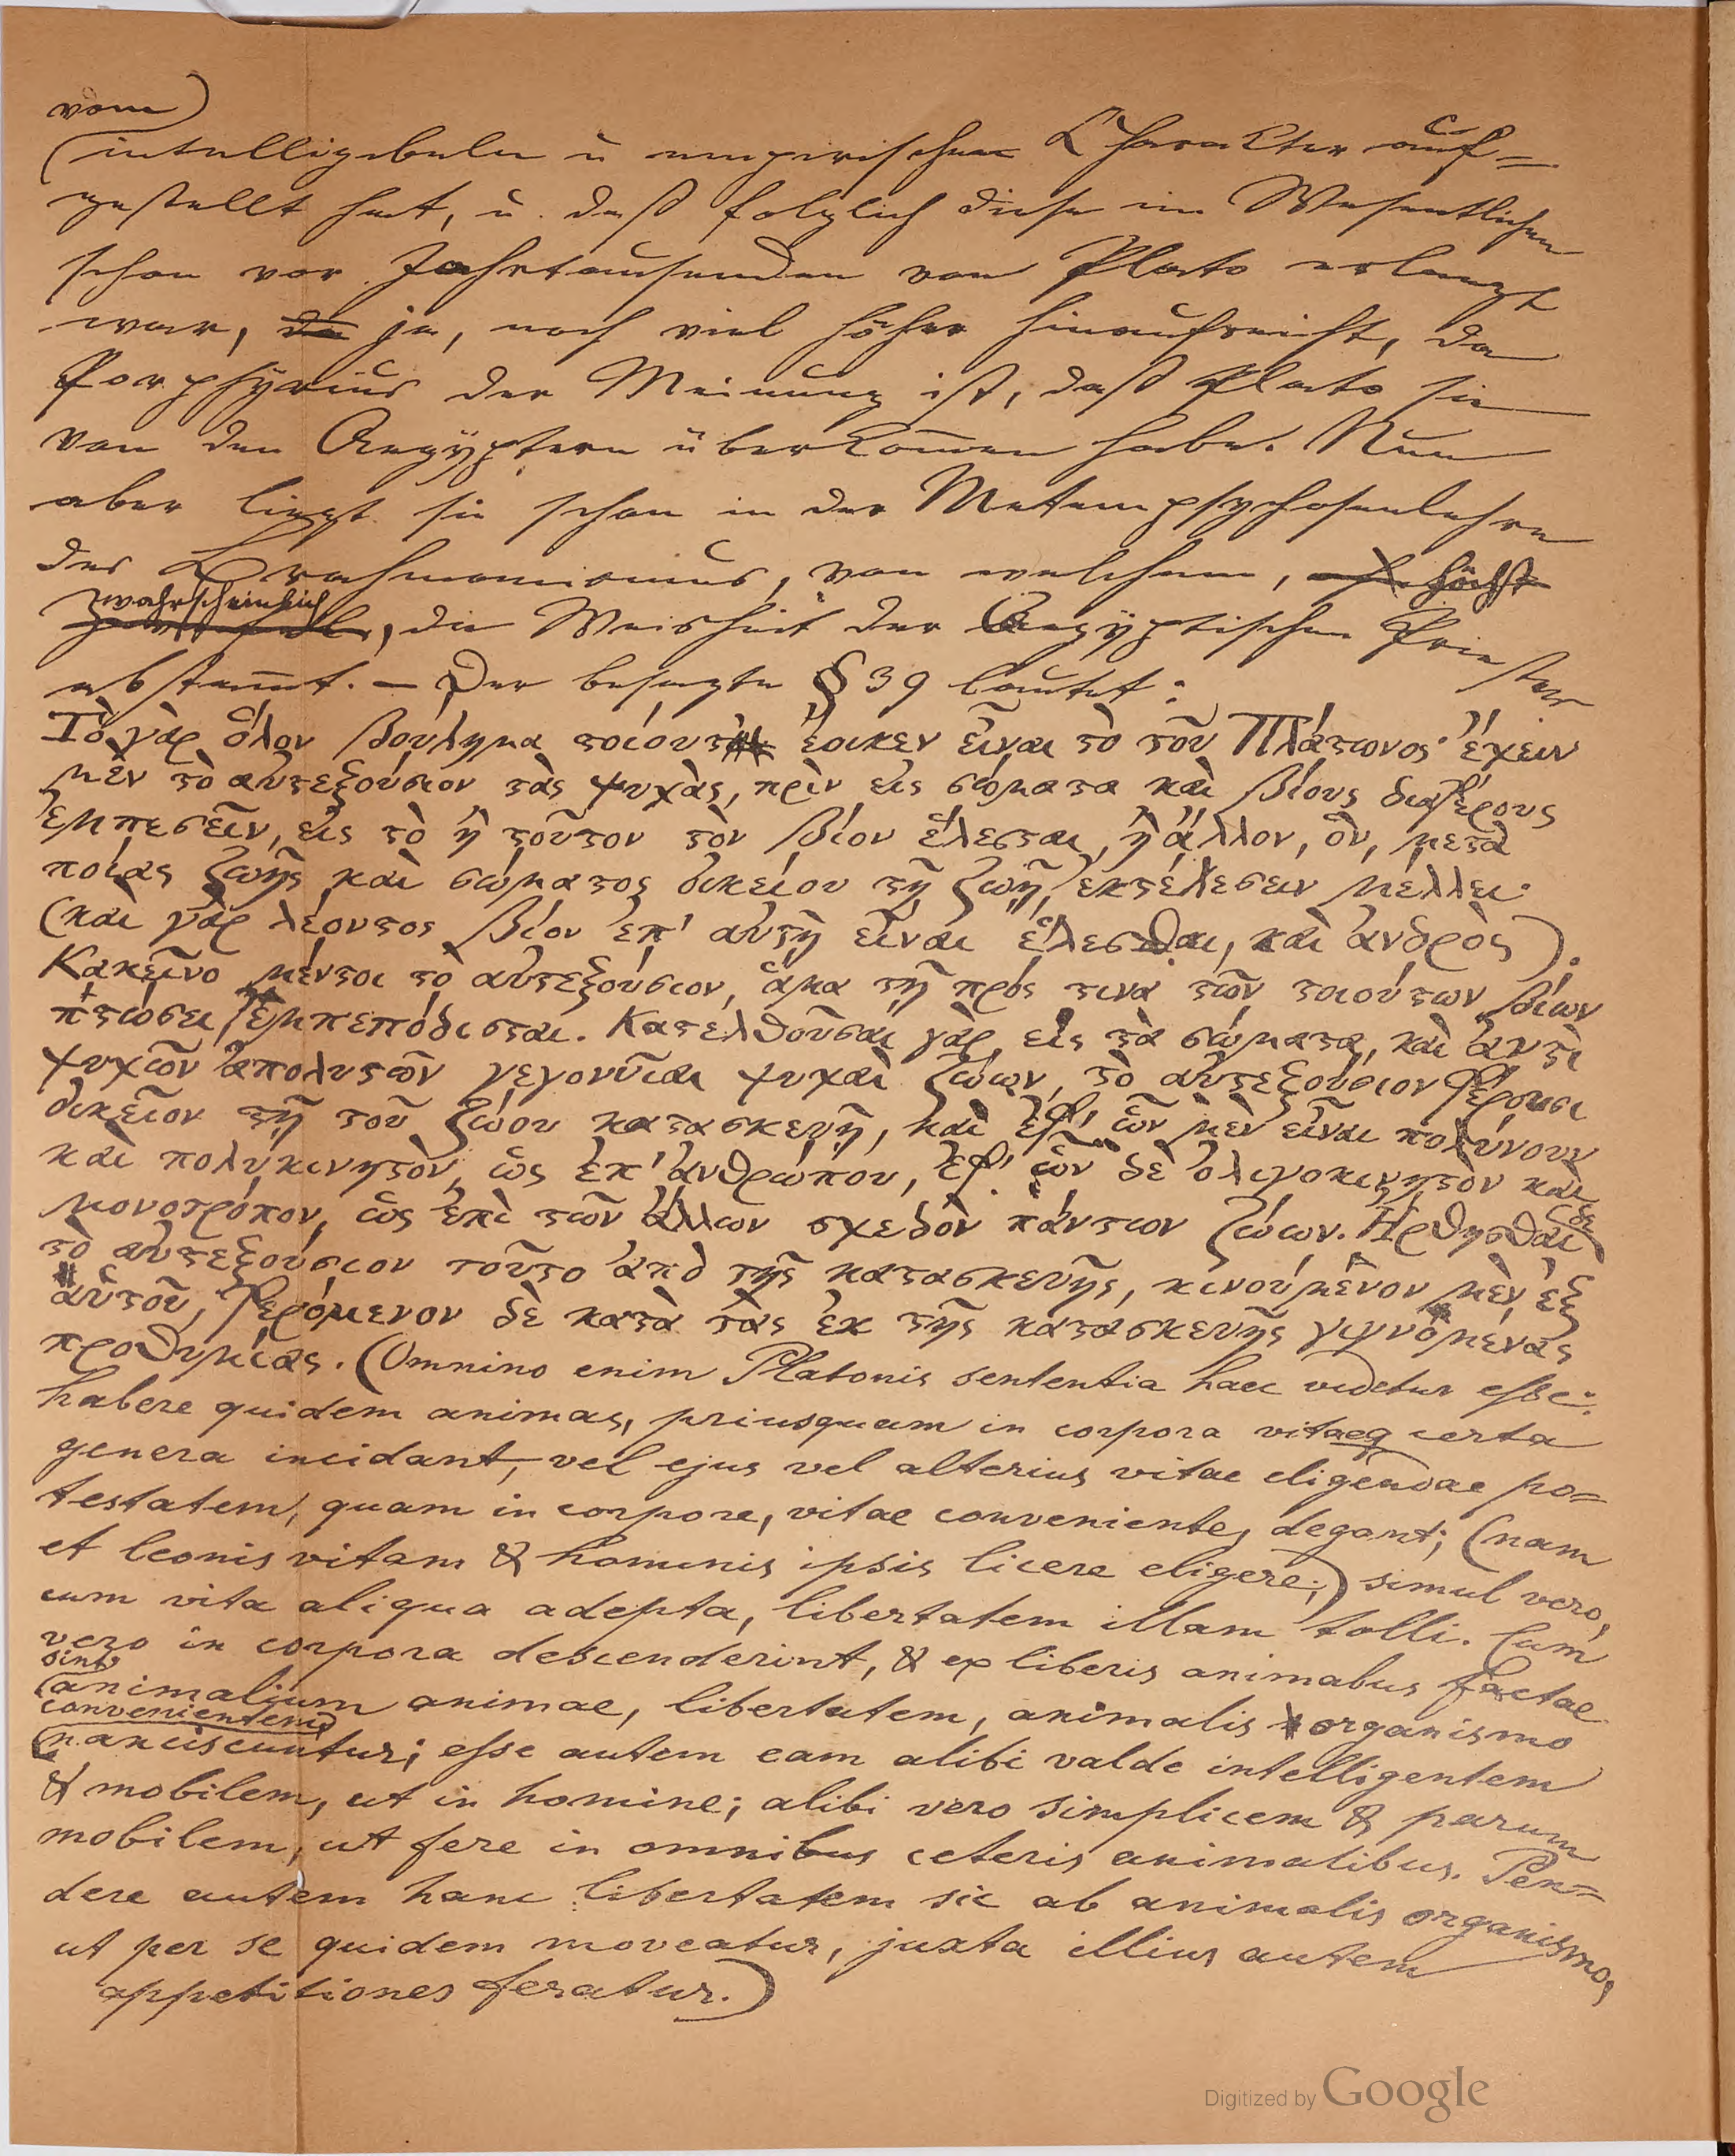 vom
intelligibeln u empirischen Charakter auf=
gestellt hat, u. daß folglich diese im Wesentlichen
schon vor Jahrtausenden von Plato erlangt
war, ja, noch viel höher hinaufreicht, da
Porphyrius der Meinung ist, daß Plato sie
von den Aegyptern überkom̄en habe. Nun
aber liegt sie schon in der Metempsychosenlehre
des Brahmanismus, von welchem, höchst
wahrscheinlich
, die Weisheit der Aegyptischen Priester
abstam̄t. — Der besagte § 39 lautet:
Τὸ γὰρ ὅλον βούλημα τοίουτ' ἔοικεν εἶναι τὸ τοῦ Πλάτωνος· ἔχειν
μὲν τὸ αὐτεξούσιον τὰς ψυχὰς, πρὶν εἰς σώματα καὶ βίους διαφέρους
ἐμπεσεῖν, εἰς τὸ ἢ τοῦτον τὸν βίον ἕλεσται, ἢ ἄλλον, ὃν, μετὰ
ποίας ζωῆς καὶ σώματος οἰκείου τῇ ζωῇ, ἐκτέλεσειν μέλλει·
(καὶ γὰρ λέοντος βίον ἐπ' αὐτῇ εἶναι ἕλεσθαι, καὶ ἀνδρὸς).
Κακεῖνο μέντοι τὸ αὐτεξούσιον, ἅμα τῇ πρός τινα τῶν τοιούτων βίων
πτώσει, ἐμπεπόδισται. Κατελθοῦσαι γὰρ εἰς τὰ σώματα, καὶ ἀντὶ
ψυχῶν ἀπολυτῶν γεγονυῖαι ψυχαὶ ζώων, τὸ αὐτεξούσιον φέρουσι
οἰκεῖον τῇ τοῦ ζώου κατασκευῇ, καὶ ἐφ' ὧν μὲν εἶναι πολύνουν
καὶ πολυκινητὸν, ὡς ἐπ' ἀνθρώπου, ἐφ' ὧν δὲ ὀλιγοκινητὸν καὶ
μονοτρόπον, ὡς ἐπὶ τῶν ἄλλων σχεδὸν πάντων ζώων. Ηρθησθαι δε
τὸ αὐτεξούσιον τοῦτο ἀπὸ τῆς κατασκευῆς, κινούμενον μὲν ἐξ
αὑτοῦ, φερόμενον δὲ κατὰ τὰς ἐκ τῆς κατασκευῆς γιγνομένας
προθυμίας. (Omnino enim Platonis sententia haec videtur esse:
habere quidem animas, priusquam in corpora vitaeq certa
genera incidant, vel ejus vel alterius vitae eligendae po=
testatem, quam in corpore, vitae conveniente, degant; (nam
et leonis vitam & hominis ipsis licere eligere;) simul vero,
cum vita aliqua adepta, libertatem illam tolli. Cum
vero in corpora descenderint, & ex liberis animabus factae
sint
animalium animae, libertatem, animalis organismo
convenientem
nanciscuntur; esse autem eam alibi valde intelligentem
& mobilem, ut in homine; alibi vero simplicem & parum
mobilem, ut fere in omnibus ceteris animalibus. Pen=
dere autem hanc libertatem sic ab animalis organismo,
ut per se quidem moveatur, juxta illius autem
appetitiones feratur.)
Digitized by Google